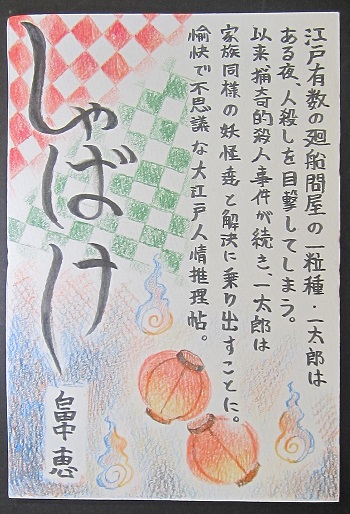 江戸有数の廻船問屋の一粒種・一太郎は
ある夜、人殺しを目撃してしまう。
以来猟奇的殺人事件が続き、一太郎は
家族同様の妖怪達と解決に乗り出すことに。
愉快で不思議な大江戸人情推理帖。
しゃばけ
畠中恵